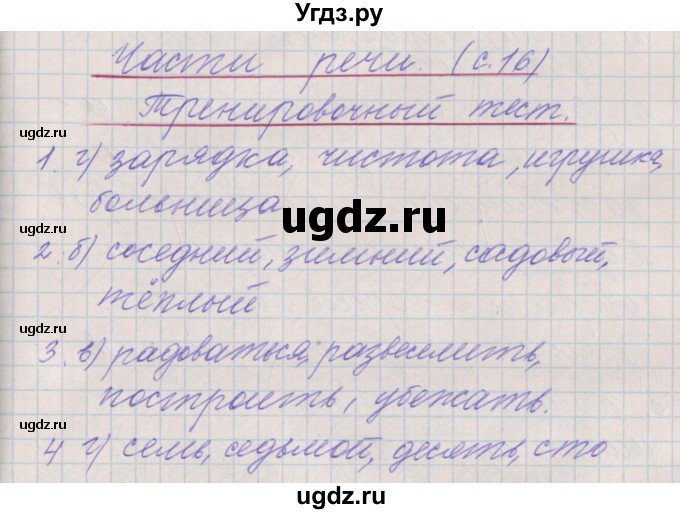 Угдз.ру
Части речи. (с.16)
Тренировочный тест.
ugdz.ru
1. г) зарядка, чистота, игрушка,
больница
ugdz.ru
ugdz.ru
2. б) соседний, зимний, садовый,
ugdz.ru
тёплый
ugdz.ru
3. в) радоваться, развеселить,
построить, убежать.
ugdz.ru
4 г) семь, седьмой, десять, сто
ugdz.ru
ugdz.ru